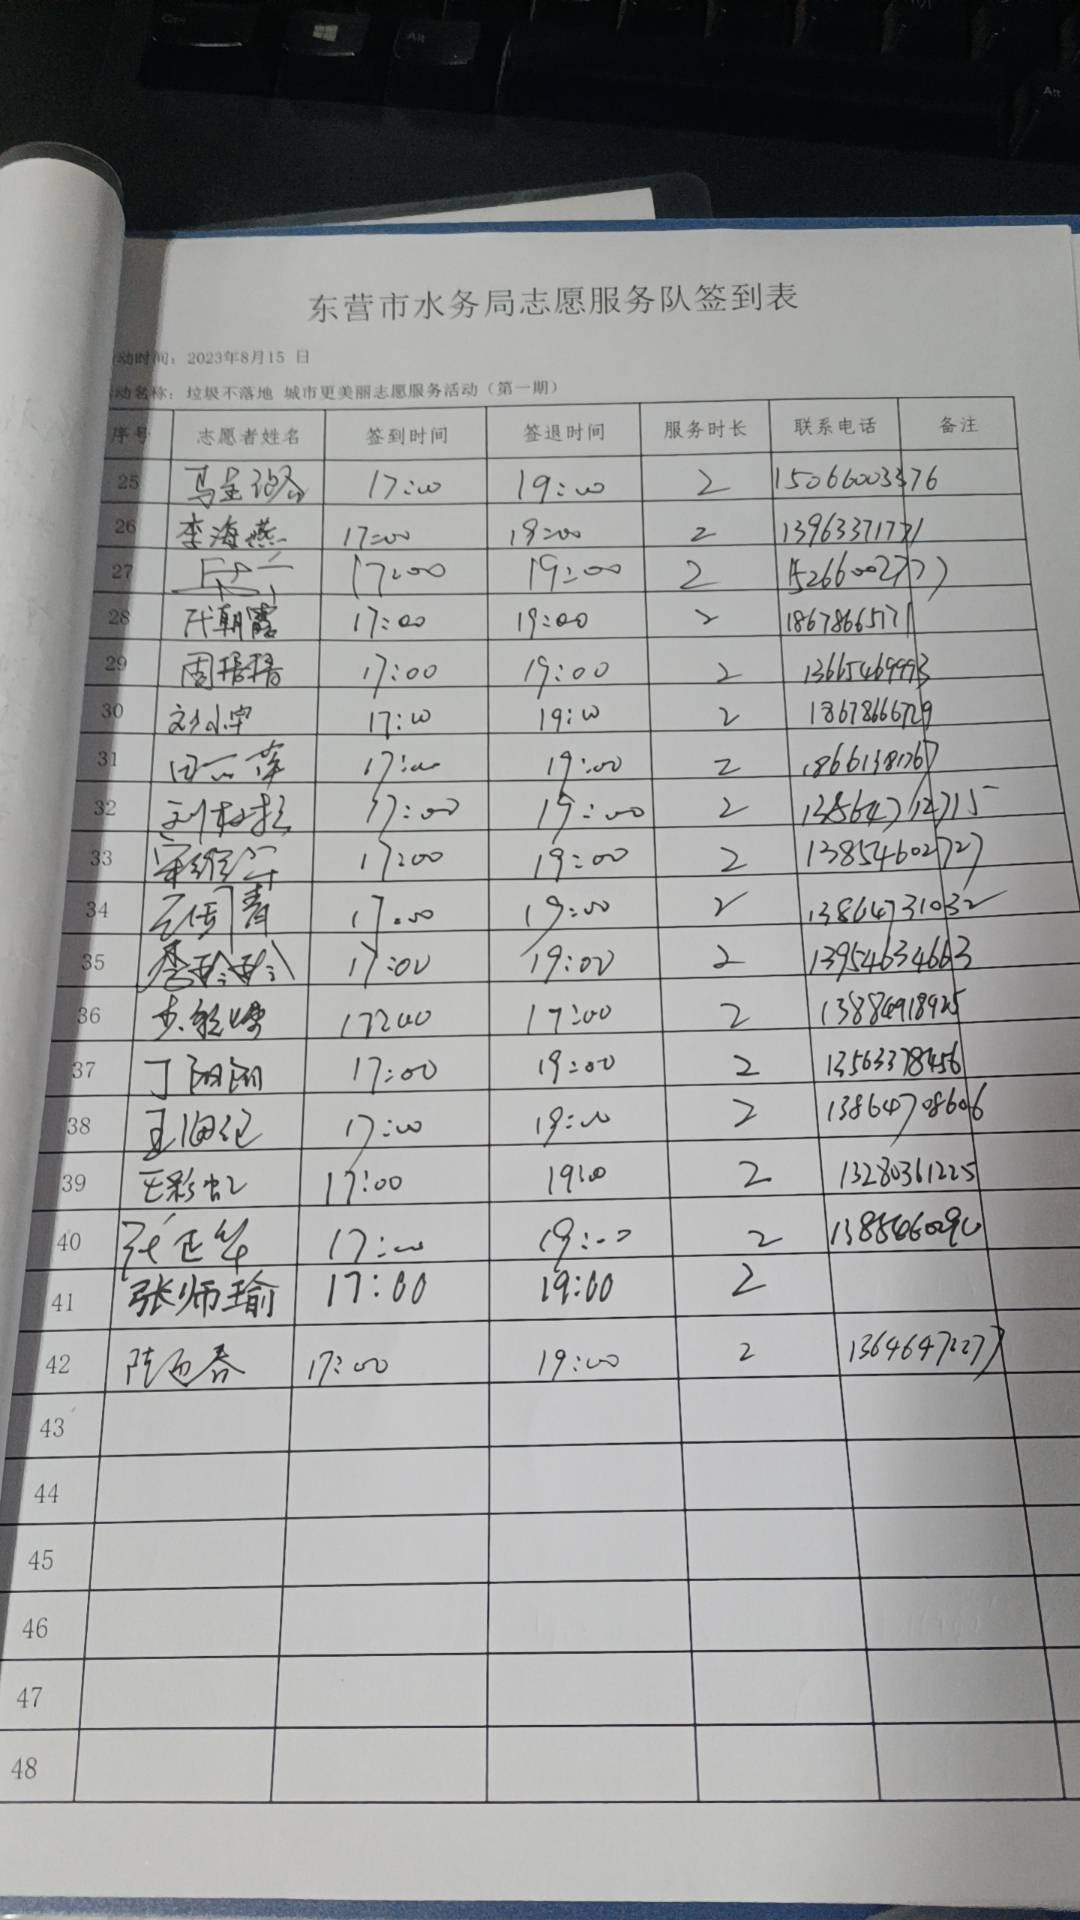 Ctrl Alt Alt
东营市水务局志愿服务队签到表
动时间：2023年8月15 日
动名称：垃圾不落地 城市更美丽志愿服务活动（第一期）
序号 志愿者姓名 签到时间 签退时间 服务时长 联系电话 备注
25 17:00 19:00 2 15066003376
26 李海燕 17:00 19:00 2 13963371771
27 17:00 19:00 2 15266002777
28 代朝霞 17:00 19:00 2 18678665171
29 周培培 17:00 19:00 2 13665469993
30 刘小宁 17:00 19:00 2 18678666729
31 17:00 19:00 2 18661381767
32 17:00 19:00 2 13864712715
33 17:00 19:00 2 13854602727
34 17:00 19:00 2 13864731032
35 李玲玲 17:00 19:00 2 13954634663
36 17:00 17:00 2
37 丁翔翔 17:00 19:00 2 13563378456
38 17:00 19:00 2 13864708606
39 王彩虹 17:00 19:00 2 13280361225
40 张正华 17:00 19:00 2
41 张师瑜 17:00 19:00 2
42 陆迎春 17:00 19:00 2 13646472277
43
44
45
46
47
48